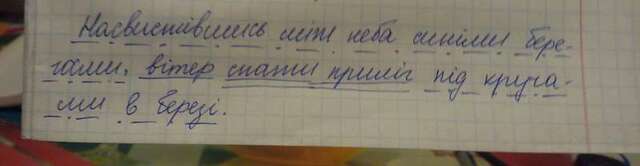 Насвистівшись між неба синіми бере-
гами, вітер спати приліг під круга-
ми в березі.